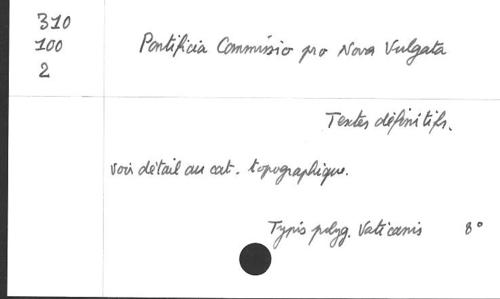 310
100
2
Pontificia Commissio pro Nova Vulgata
Textes définitifs.
voir détail au cat. topographique.
Typis polyg. Vaticanis 8°